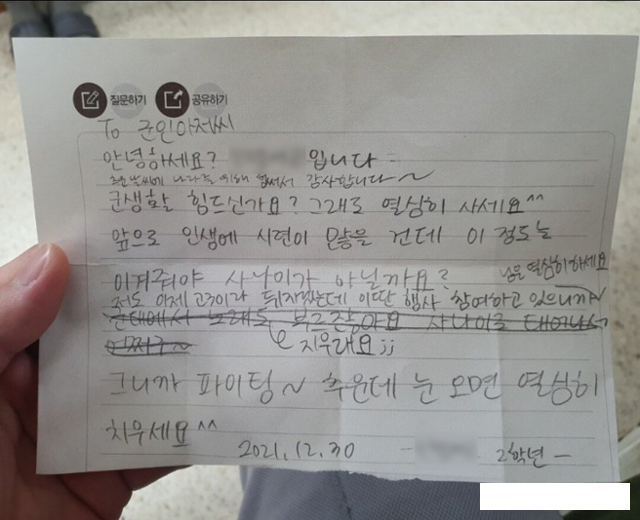 질문하기 공유하기
To 군인아저씨
안녕하세요? 입니다
추운날씨에 나라를 위해 힘써서 감사합니다~
군생활 힘드신가요? 그래도 열심히 사세요^^
앞으로 인생에 시련이 많을 건데 이 정도는
이겨줘야 사나이가 아닐까요?
저도 이제 고3이라 뒤지겠는데 이딴 행사 참여하고 있으니까~
님은 열심히하세요
군대에서 노래도 부르잖아요 사나이로 태어나서
어쩌구~
지우래요;;
그니까 파이팅~ 추운데 눈 오면 열심히
치우세요^^
2021.12.30 - 2학년 -